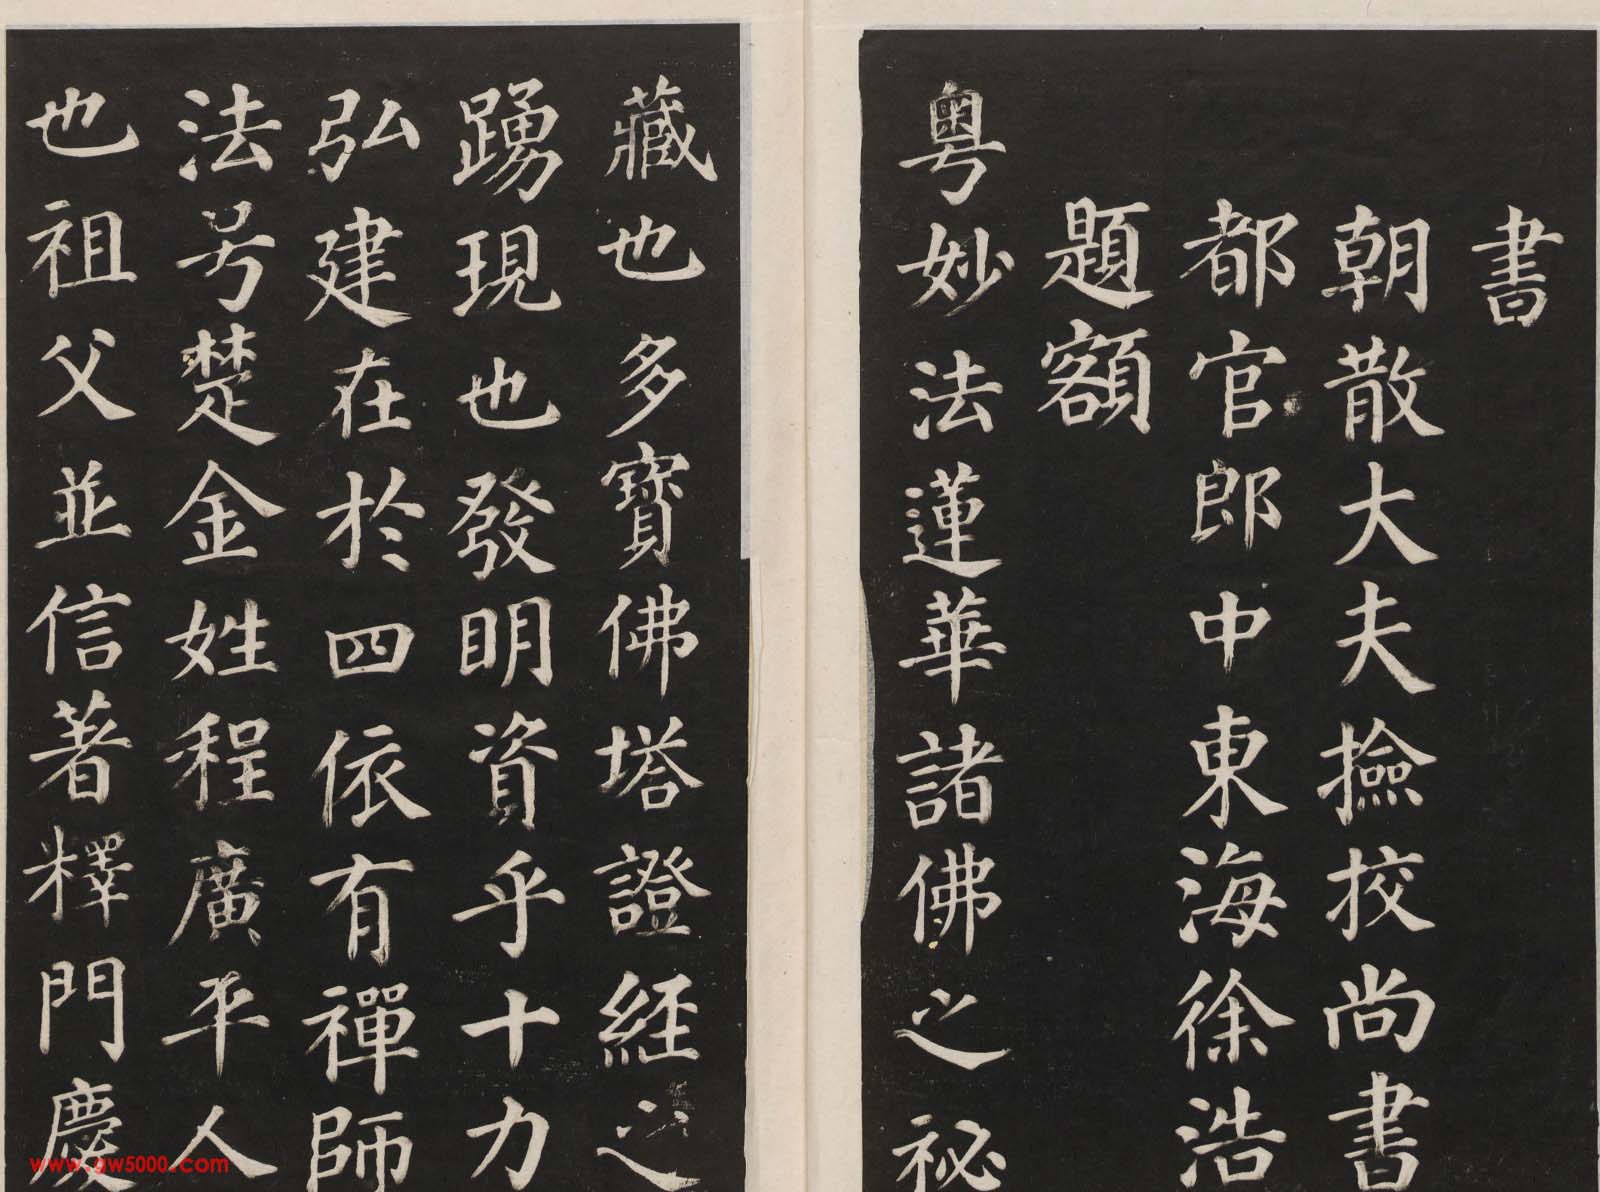 書
朝散大夫撿挍尚書
都官郎中東海徐浩
題額
粤妙法蓮華諸佛之祕
藏也多寳佛塔證經之
踴現也發明資乎十力
弘建在於四依有禪師
法号楚金姓程廣平人
也祖父並信著釋門慶
www.gw5000.com